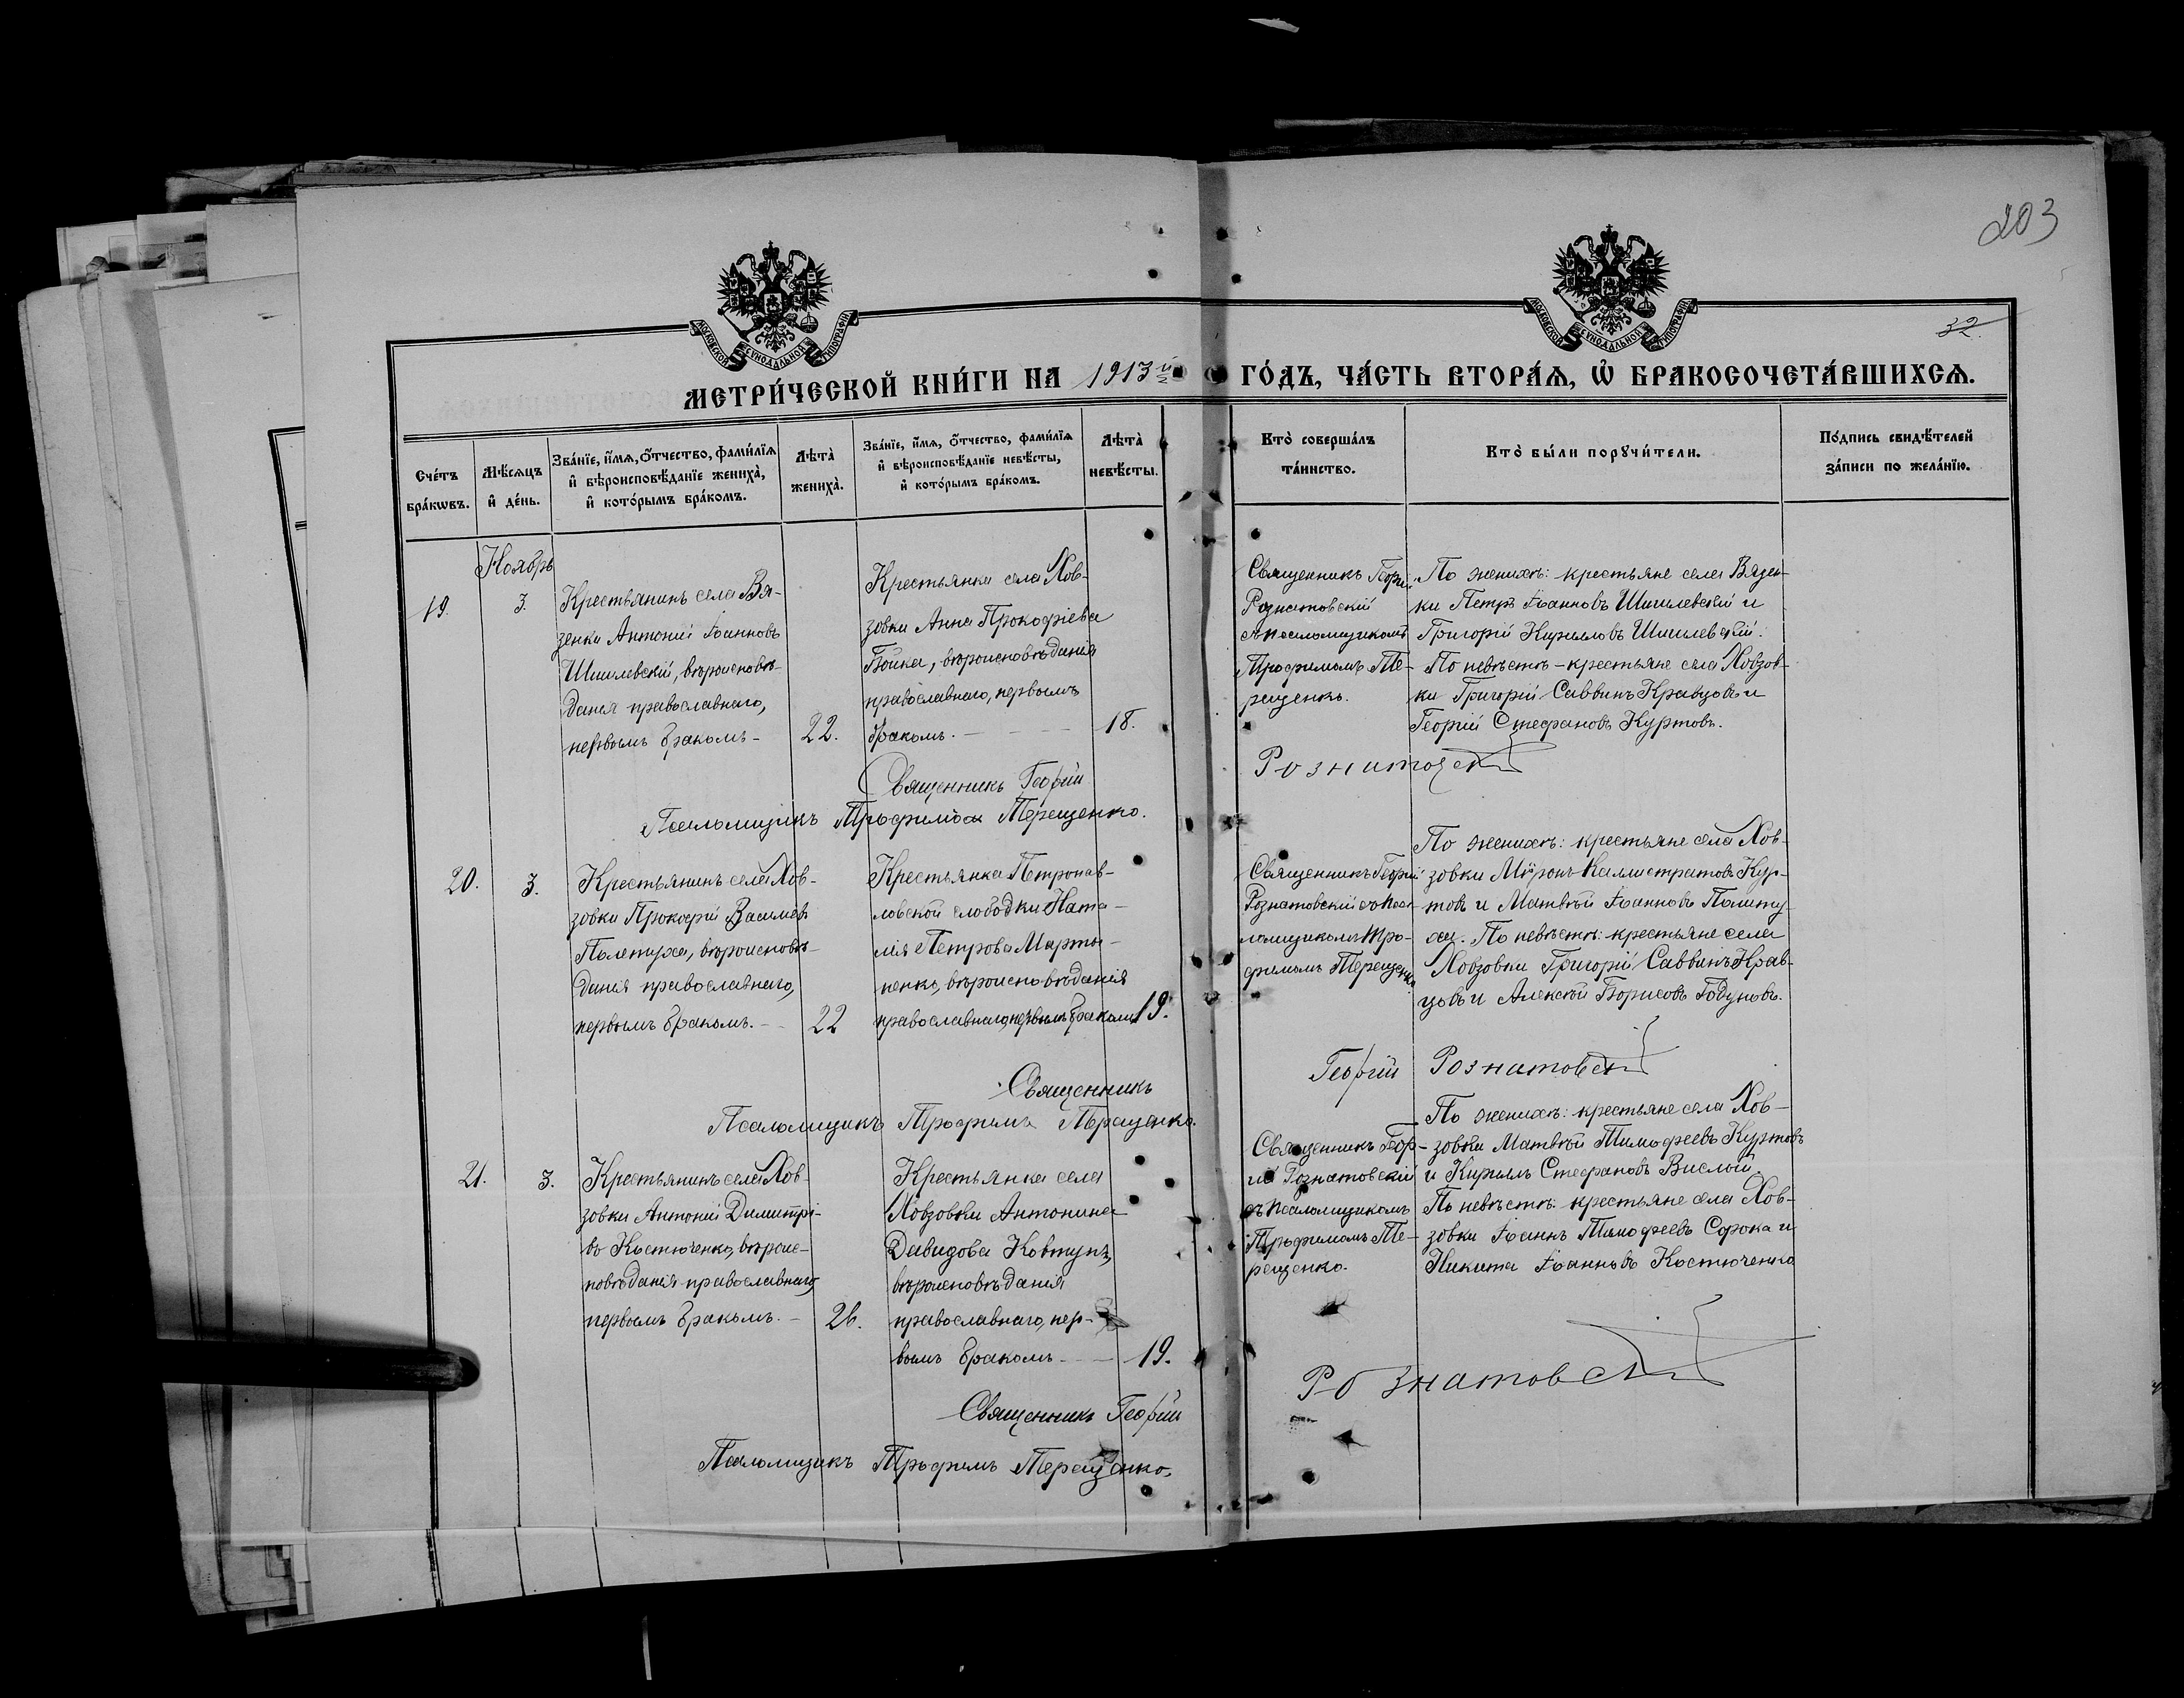 203
32.
МОСКОВСКОЙ СѴНОДАЛЬНОЙ ТИПОГРАФІИ
МОСКОВСКОЙ СѴНОДАЛЬНОЙ ТИПОГРАФІИ
МЕТРИ́ЧЕСКОЙ КНИ́ГИ НА 1913й ГО́ДЪ, ЧА́СТЬ ВТОРА́Ѧ, Ѽ БРАКОСОЧЕТА́ВШИХСѦ.
Сче́тъ бра́кѡвъ.
Мѣ́сѧцъ и҆ де́нь.
Зва́нїе, и҆́мѧ, ѻ҆́тчество, фами́лїѧ
и҆ вѣроисповѣ́данїе жениха̀,
и҆ кото́рымъ бра́комъ.
Лѣта̀ жениха̀.
Зва́нїе, и҆́мѧ, ѻ҆́тчество, фами́лїѧ
и҆ вѣроисповѣ́данїе невѣ́сты,
и҆ кото́рымъ бра́комъ.
Лѣта̀ невѣ́сты.
Кто̀ соверша́лъ та́инство.
Кто̀ бы́ли порꙋчи́тели.
По́дпись свидѣ́телей за́писи по жела́нїю.
Ноябрь
19.
3.
Крестьянинъ села Вя-
зенки Антоній Іоанновъ
Шишлевскій, вѣроисповѣ-
данія православнаго,
первымъ бракомъ -
22.
Крестьянка села Хов-
зовки Анна Прокофіева
Бойка, вѣроисповѣданія
православнаго, первымъ
бракомъ. - - -
18.
Священникъ Георгій
Рознатовскій
съ псаломщикомъ
Трофимомъ Те-
рещенко.
По женихѣ: крестьяне села Вязен-
ки Петръ Іоанновъ Шишлевскій и
Григорій Кирилловъ Шишлевскій.
По невѣстѣ - крестьяне села Ховзов-
ки Григорій Саввинъ Кравцовъ и
Георгій Стефановъ Куртовъ.
Священникъ Георгій Рознатовскій
Псаломщикъ Трофимъ Терещенко.
20.
3.
Крестьянинъ села Хов-
зовки Прокофій Васильевъ
Полетуха, вѣроисповѣ-
данія православнаго,
первымъ бракомъ. - -
22
Крестьянка Петропав-
ловской слободки Ната-
лія Петрова Марты-
ненко, вѣроисповѣданія
православнаго, первымъ бракомъ
19.
Священникъ Георгій
Рознатовскій съ псал-
ломщикомъ Тро-
фимомъ Терещенко.
По женихѣ: крестьяне села Хов-
зовки Миронъ Каллистратовъ Кур-
товъ и Матвѣй Іоанновъ Полету-
ха. По невѣстѣ: крестьяне села
Ховзовки Григорій Саввинъ Крав-
цовъ и Алексѣй Борисовъ Годуновъ.
Священникъ Георгій Рознатовскій
Псаломщикъ Трофимъ Терещенко.
21.
3.
Крестьянинъ села Хов-
зовки Антоній Димитрі-
въ Костюченко, вѣроис-
повѣданія православнаго,
первымъ бракомъ. -
26.
Крестьянка села
Ховзовки Антонина
Давидова Ковтунъ,
вѣроисповѣданія
православнаго, пер-
вымъ бракомъ - -
19.
Священникъ Геор-
гій Рознатовскій
съ псаломщикомъ
Трофимомъ Те-
рещенко.
По женихѣ: крестьяне села Хов-
зовки Матвѣй Тимофеевъ Куртовъ
и Кириллъ Стефановъ Вислой.
По невѣстѣ: крестьяне села Хов-
зовки Іоаннъ Тимофеевъ Сорока и
Никита Іоанновъ Костюченко
Священникъ Георгій Рознатовскій
Псаломщикъ Трофимъ Терещенко.